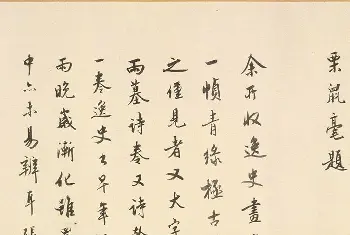 栗鼠毫題
余所收逸史畫
一幀青緑極古
之僅見者又大字
兩墓詩卷又詩
一卷逸史公早年
兩晚歲漸化雖
中亦未易辨耳張